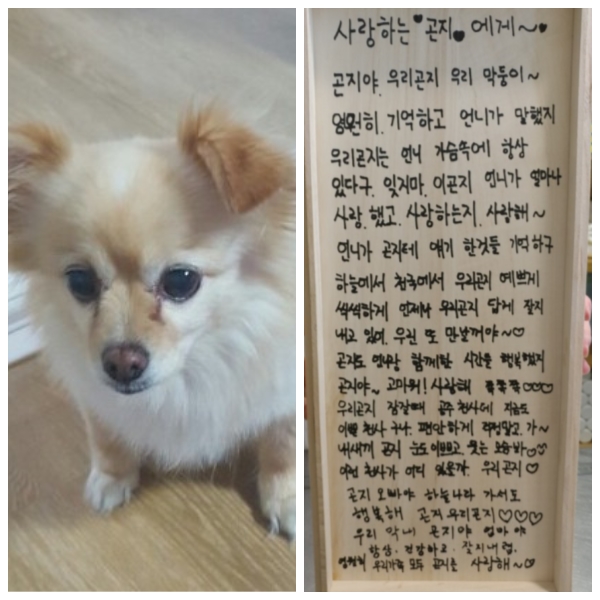 사랑하는 곤지 에게~
곤지야. 우리곤지 우리 막둥이~
영원히. 기억하고 언니가 말했지
우리곤지는 언니 가슴속에 항상
있다구. 잊지마. 이곤지 언니가 얼마나
사랑.했고. 사랑하는지. 사랑해~
언니가 곤지테 얘기 한것들 기억하구
하늘에서 천국에서 우리곤지 예쁘게
씩씩하게 언제나 우리곤지 답게 잘지
내고 있어. 우린 또 만날꺼야~♡
곤지도 언니랑 함께한 시간을 행복했지
곤지야~ 고마워! 사랑해 쪽쪽쪽♡♡♡
우리곤지 잠잘때 공주천사네 지금도
이쁜 천사 구나. 편안하게 걱정말고. 가~
내새끼 곤지 눈도이쁘고 웃는 모습봐♡
이런 천사가 어디 있을까. 우리곤지♡
곤지 오빠야 하늘나라 가서도
행복해 곤지 우리곤지♡♡♡
우리 막내 곤지야 엄마 야
항상. 건강하고. 잘지내렴.
영원히 우리가족 모두 곤지를 사랑해~♡